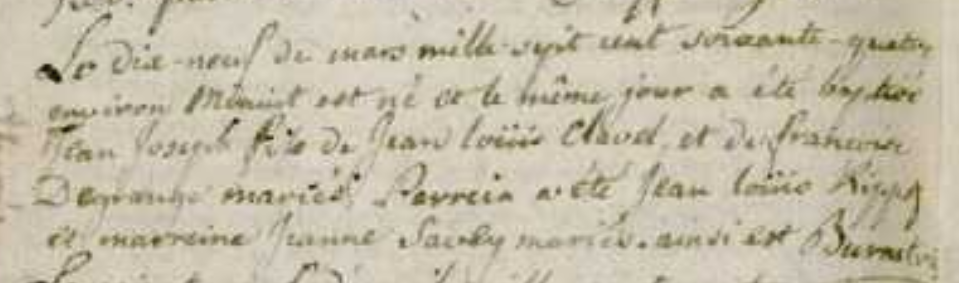 Le dix-neuf de mars mille sept cent soixante-quatre
environ Minuit est né et le même jour a été baptisé
Jean Joseph fils de Jean loüis Clavel, et de francoise
Degrange mariés. Parrein a été Jean loüis
et marreine Jeanne mariés. ainsi est